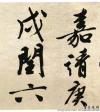 嘉靖庚
戌閏六